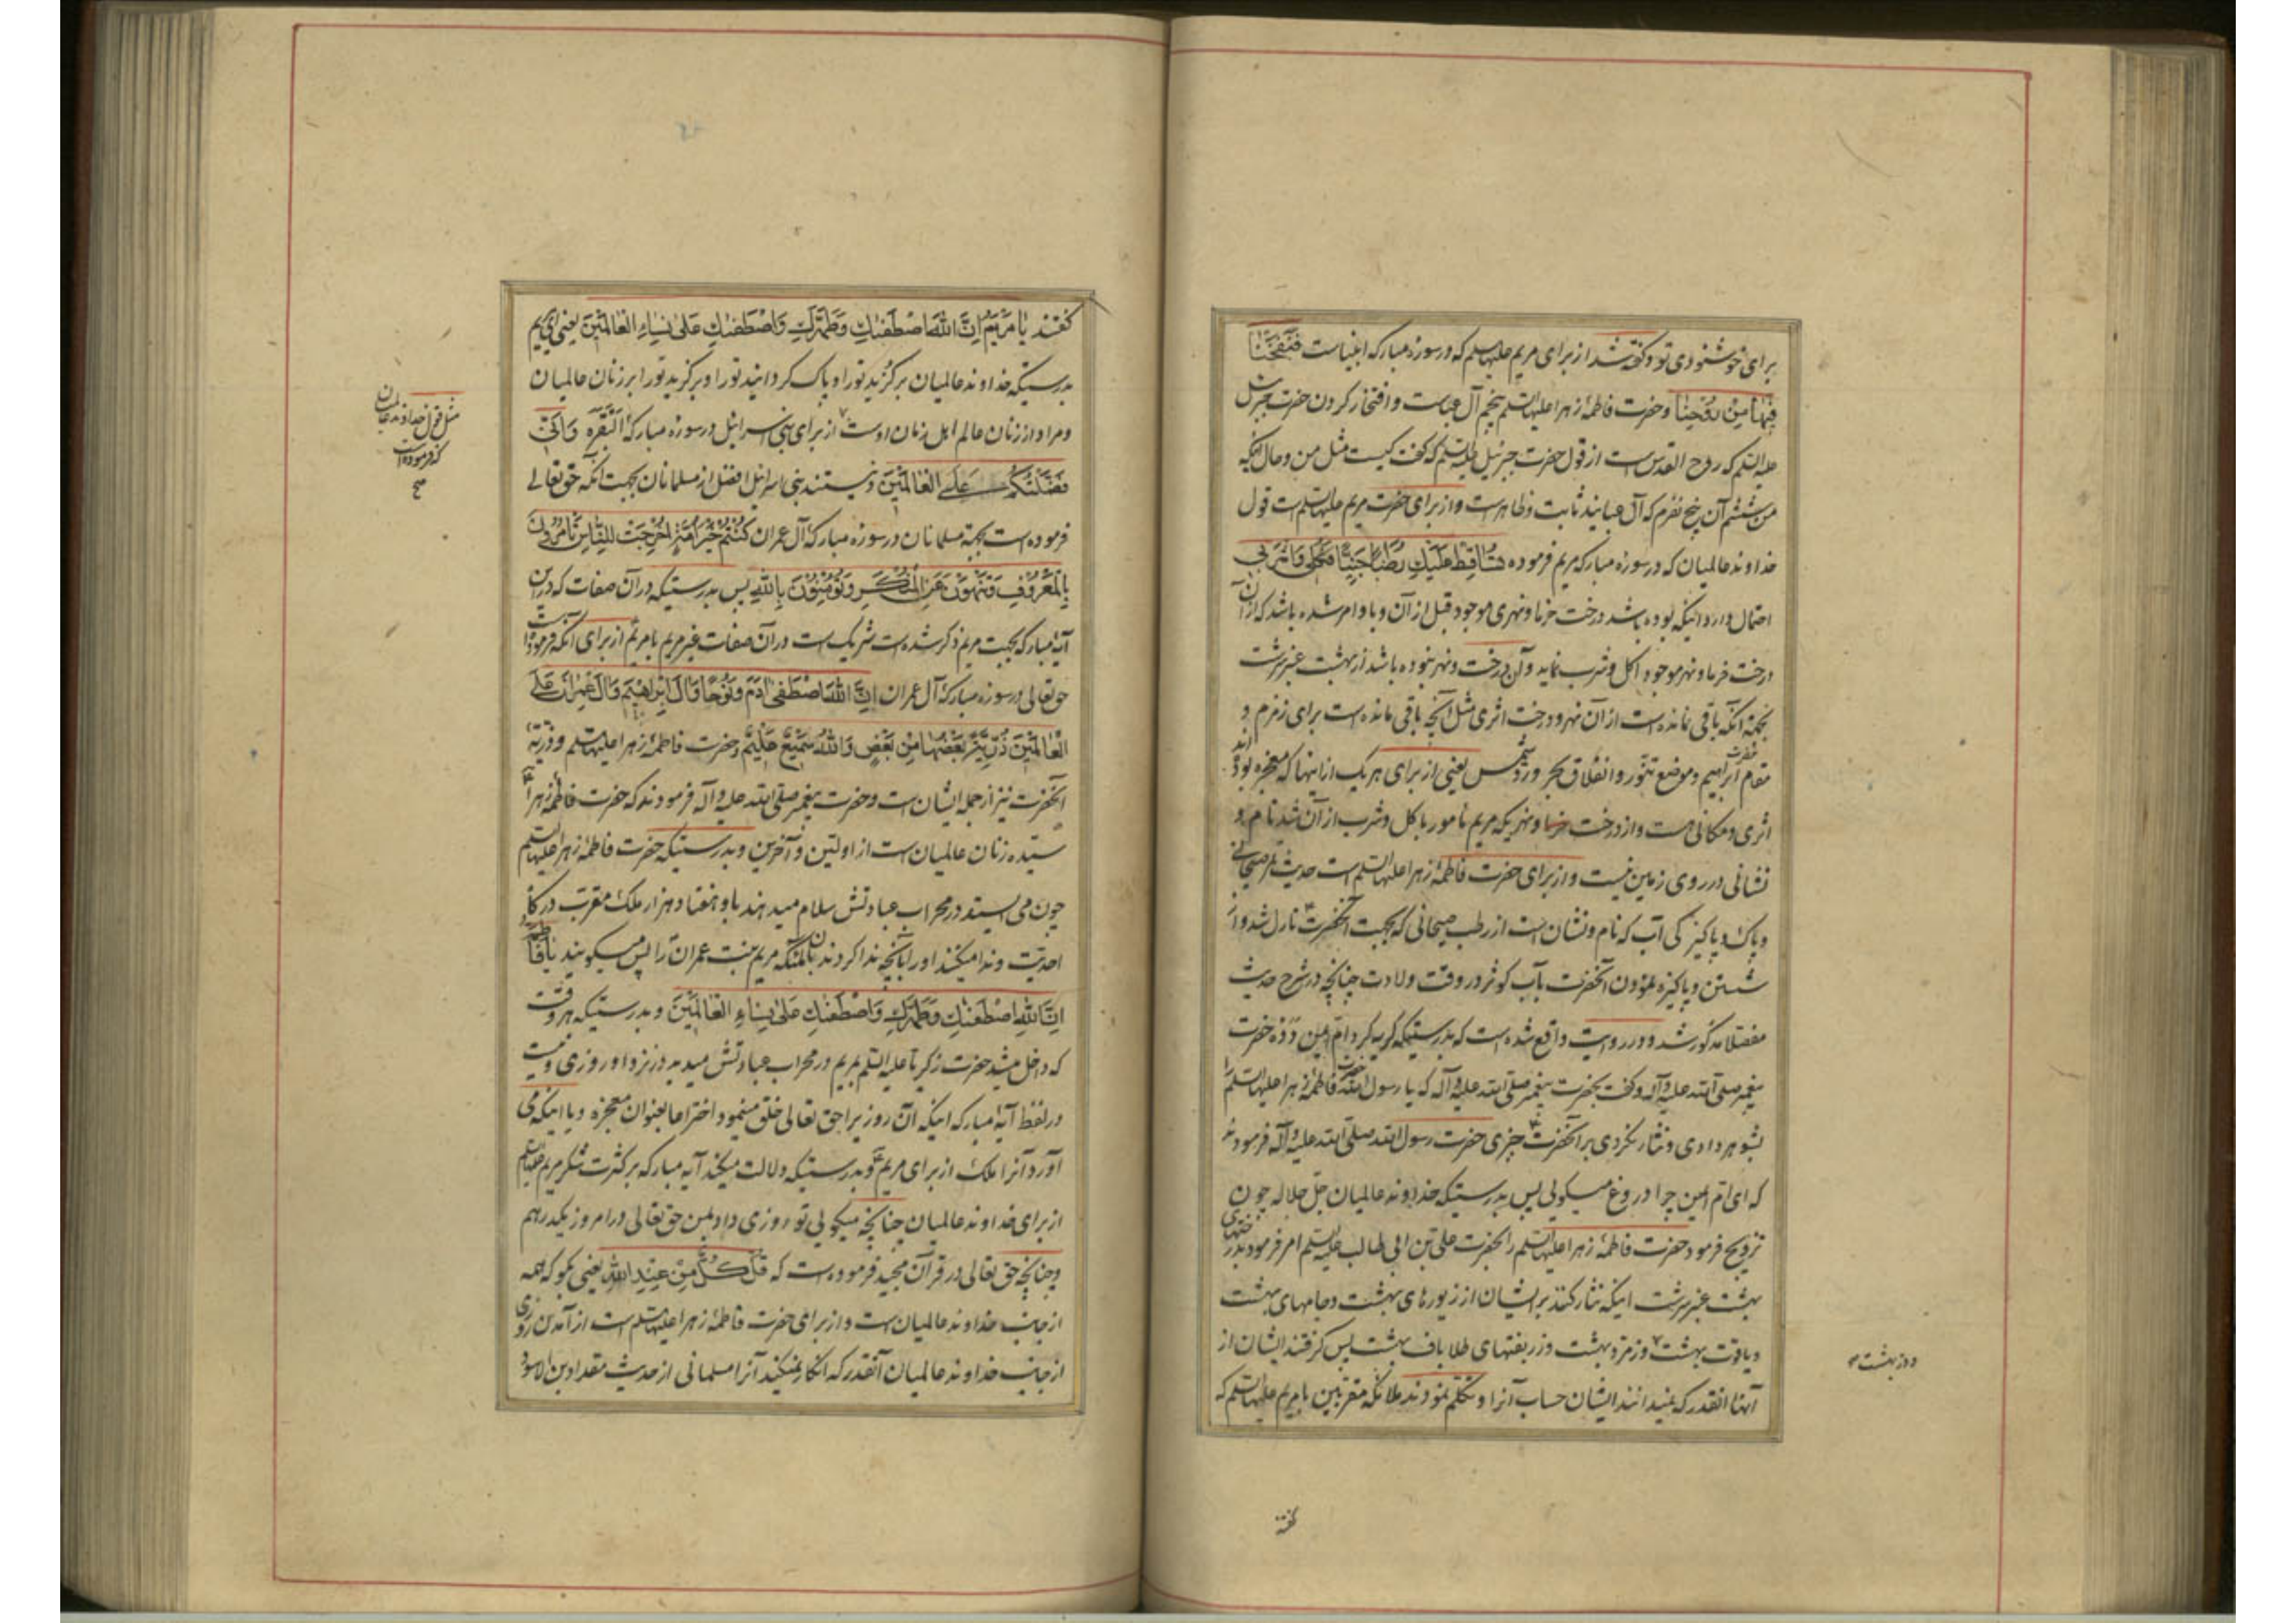 برای خوشنودی تو و گفته شد از برای مریم علیها السلم که در سورهٔ مبارکه انبیاست فَنَفَخْنَا
فِیهَا مِنْ رُوحِنَا و حضرت فاطمهٔ زهرا علیها السلم پنجم آل عباست و افتخار کردن حضرت جبرئیل
علیه السلم که روح القدس است از قول حضرت جبرئیل علیه السلم که گفت کیست مثل من و حال آنکه
من ششم آن پنج نفرم که آل عبایند ثابت و ظاهر است و از برای حضرت مریم علیها السلم است قول
خداوند عالمیان که در سورهٔ مبارکه مریم فرموده تُسَاقِطْ عَلَیْكِ رُطَبًا جَنِیًّا فَكُلِی وَاشْرَبِی
احتمال دارد اینکه بوده باشد درخت خرما و نهری موجود قبل از آن و با او امر شده باشد که از آن
درخت خرما و نهر موجود اکل و شرب نماید و آن درخت و نهر نبوده باشد از بهشت عنبر سرشت
بجهة آنکه باقی نمانده است از آن نهر و درخت اثری مثل آنچه باقی مانده است برای زمزم و
مقام حضرت ابراهیم و موضع تنور و انفلاق بحر و رد شمس یعنی از برای هر یک از اینها که معجزه بوده اند
اثری و مکانی هست و از درخت خرما و نهریکه مریم مأمور باکل و شرب از آن شد نام و
نشانی در روی زمین نیست و از برای حضرت فاطمهٔ زهرا علیها السلم است حدیث تمر صیحانی
و پاک و پاکیزگی آب که نام و نشان است از رطب صیحانی که بجهت آنحضرت نازل شد و از
شستن و پاکیزه نمودن آنحضرت بآب کوثر در وقت ولادت چنانچه در شرح حدیث
مفصلا مذکور شد و در روایت واقع شده است که بدرستیکه گریه کرد ام ایمن نزد حضرت
پیغمبر صلی الله علیه و آله و گفت بحضرت پیغمبر صلی الله علیه و آله که یا رسول الله حضرت فاطمهٔ زهرا علیها السلم را
بشوهر دادی و نثار نکردی بر آنحضرت چیزی حضرت رسول الله صلی الله علیه و آله فرمودند
که ای ام ایمن چرا دروغ میگوئی پس بدرستیکه خداوند عالمیان جل جلاله چون
تزویج فرمود حضرت فاطمهٔ زهرا علیها السلم را بحضرت علی بن ابی طالب علیه السلم امر فرمود بدرختهای
بهشت عنبر سرشت اینکه نثار کنند بر ایشان از زیورهای بهشت و جامهای بهشت
و یاقوت بهشت و زمرد بهشت و زربفتهای طلاباف بهشت پس گرفتند ایشان از
آنها انقدر که نمیدانند ایشان حساب آنرا و تکلم نمودند ملائکه مقربین با مریم علیها السلم که
گفتند یَا مَرْیَمُ إِنَّ اللهَ اصْطَفَیٰكِ وَطَهَّرَكِ وَاصْطَفَیٰكِ عَلَیٰ نِسَاءِ الْعَالَمِینَ یعنی ای مریم
بدرستیکه خداوند عالمیان برگزید تو را و پاک گردانید تو را و برگزید تو را بر زنان عالمیان
و مراد از زنان عالم اهل زمان اوست از برای بنی اسرائیل در سورهٔ مبارکهٔ البقره وَأَنِّی
فَضَّلْتُكُمْ عَلَی الْعَالَمِینَ و نیستند بنی اسرائیل افضل از مسلمانان بجهت آنکه حق تعالی
فرموده است بجهة مسلمانان در سورهٔ مبارکهٔ آل عمران كُنْتُمْ خَیْرَ أُمَّةٍ أُخْرِجَتْ لِلنَّاسِ تَأْمُرُونَ
بِالْمَعْرُوفِ وَتَنْهَوْنَ عَنِ الْمُنْكَرِ وَتُؤْمِنُونَ بِاللهِ پس بدرستیکه در آن صفات که در این
آیهٔ مبارکه بجهت مریم ذکر شده است شریک است در آن صفات غیر مریم با مریم از برای آنکه فرموده است
حق تعالی در سورهٔ مبارکهٔ آل عمران إِنَّ اللهَ اصْطَفَی آدَمَ وَنُوحًا وَآلَ إِبْرَاهِیمَ وَآلَ عِمْرَانَ عَلَی
الْعَالَمِینَ ذُرِّیَّةً بَعْضُهَا مِنْ بَعْضٍ وَاللهُ سَمِیعٌ عَلِیمٌ و حضرت فاطمهٔ زهرا علیها السلم و ذریّهٔ
آنحضرت نیز از جمله ایشان است و حضرت پیغمبر صلی الله علیه و آله فرمودند که حضرت فاطمهٔ زهرا
سیّده زنان عالمیان است از اولین و آخرین و بدرستیکه حضرت فاطمهٔ زهرا علیها السلم
چون می ایستد در محراب عبادتش سلام میدهند باو هفتاد هزار ملک مقرب درگاه
احدیت و ندا میکنند او را بآنچه ندا کردند بآن ملئکه مریم بنت عمران را پس میگویند یا فاطمة
إِنَّ اللهَ اصْطَفَیٰكِ وَطَهَّرَكِ وَاصْطَفَیٰكِ عَلَیٰ نِسَاءِ الْعَالَمِینَ و بدرستیکه هر وقت
که داخل میشد حضرت زکریا علیه السلم بمریم در محراب عبادتش میدید در نزد او روزی و نیست
در لفظ آیهٔ مبارکه اینکه آن روزیرا حق تعالی خلق مینمود اختراعا بعنوان معجزه و یا اینکه می
آورد آنرا ملک از برای مریم و بدرستیکه دلالت میکند آیه مبارکه بر کثرت شکر مریم علیها السلم
از برای خداوند عالمیان چنانچه میگوئی تو روزی داد بمن حق تعالی در امروز یکدرهم
و چنانچه حق تعالی در قرآن مجید فرموده است که قُلْ كُلٌّ مِنْ عِنْدِ اللهِ یعنی بگو که همه
از جانب خداوند عالمیان است و از برای حضرت فاطمهٔ زهرا علیها السلم است از آمدن روزی
از جانب خداوند عالمیان آنقدر که انکار نمیکند آنرا مسلمانی از حدیث مقداد بن الاسود
مثل قول خداوند عالمیان
که فرموده است
صح